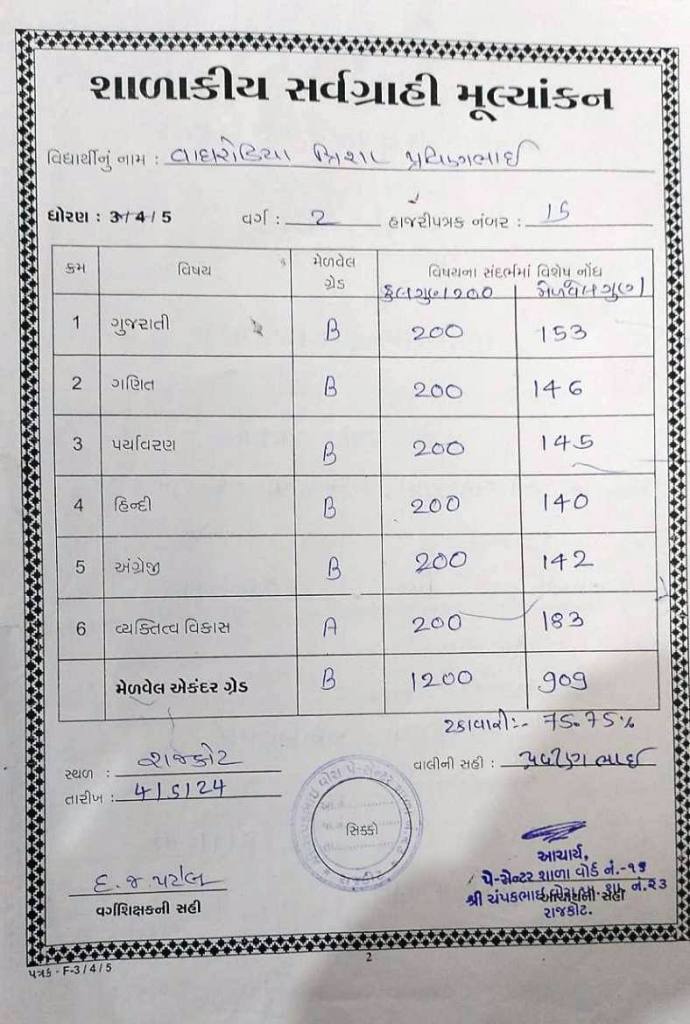 શાળાકીય સર્વગ્રાહી મૂલ્યાંકન
વિદ્યાર્થીનું નામ : વાઘરોડિયા ત્રિશા પ્રવિણભાઈ
ધોરણ : 3/4/5 વર્ગ : 2 હાજરીપત્રક નંબર : 15
ક્રમ વિષય મેળવેલ ગ્રેડ વિષયના સંદર્ભમાં વિશેષ નોંધ
કુલગુણ 1200 મેળવેલ ગુણ
1 ગુજરાતી B 200 153
2 ગણિત B 200 146
3 પર્યાવરણ B 200 145
4 હિન્દી B 200 140
5 અંગ્રેજી B 200 142
6 વ્યક્તિત્વ વિકાસ A 200 183
મેળવેલ એકંદર ગ્રેડ B 1200 909
ટકાવારી:- 75.75%
સ્થળ : રાજકોટ
વાલીની સહી : પ્રવીણભાઈ
તારીખ : 4/5/24
સિક્કો
રાજકોટ
દ. જ. પટેલ
વર્ગશિક્ષકની સહી
આચાર્ય,
પે-સેન્ટર શાળા વોર્ડ નં.-
શ્રી ચંપકભાઈ વોરા નં. ૨૩
આચાર્યની સહી
રાજકોટ.
2
પત્રક - F-3/4/5